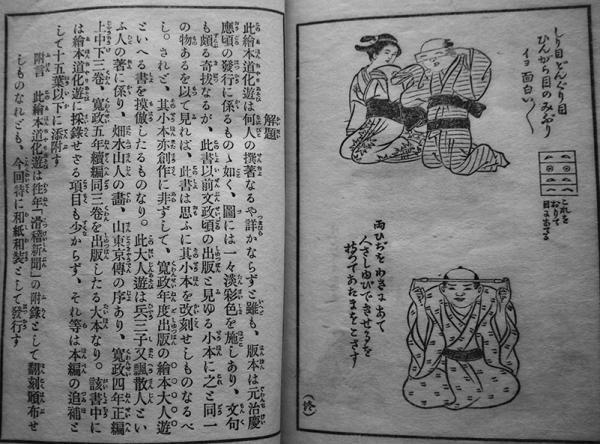 しり目どんぐり目
ひんがら目のみどり
イヨ面白い〳〵
これを
おりて
目にあてる
両ひぢをわきにあて
人さしゆびできせるを
持つてあたまをとさす
(終)
解題
此繪本道化遊は何人の撰著なるや詳かならずと雖も、版本は元治慶
應頃の發行に係るものゝ如く、圖には一々淡彩色を施しあり、文句
も頗る奇拔なるが、此書以前文政頃の出版と見ゆる小本に之と同一
の物あるを以て見れば、此書は思ふに其小本を改刻せしものなるべ
し。されど、其小本亦創作に非ずして、寛政年度出版の繪本大人遊
といへる書を摸倣したるものなり。此大人遊は兵三子又飄散人とい
ふ人の著に係り、畑水山人の畵、山東京傳の序あり、寛政四年正編
上中下三卷、寛政五年續編同三卷を出版したる大本なり。該書中に
は繪本道化遊に採錄せざる項目も少からず、それ等は本編の追補と
して十五葉以下に添附す
附言 此繪本道化遊は往年「滑稽新聞」の附錄として翻刻頒布せ
しものなれども、今回特に和紙和裝として發行す